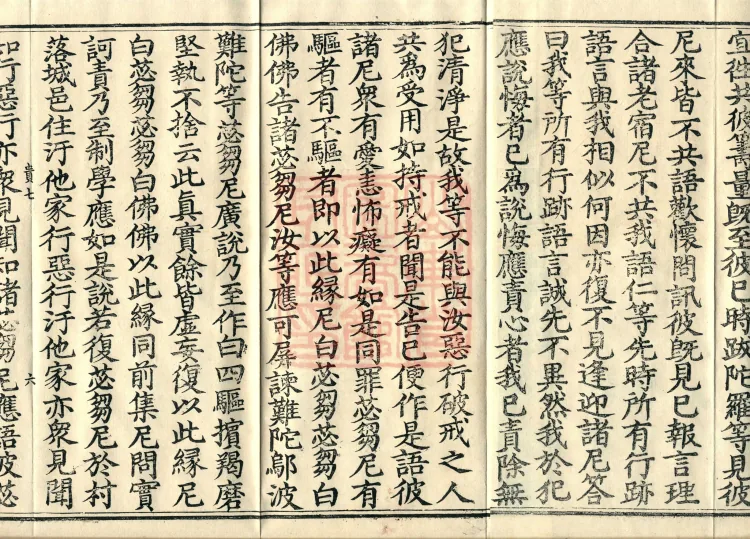 宜往共彼籌量既至彼已時跋陀羅等見彼
尼來皆不共語歡懷問訊彼既見已報言理
合諸老宿尼不共我語仁等先時所有行跡
語言與我相似何因亦復不見逢迎諸尼答
曰我等所有行跡語言誠先不異然我於犯
應說悔者已為說悔應責心者我已責除無
犯清淨是故我等不能與汝惡行破戒之人
共為受用如持戒者聞是告已便作是語彼
諸尼眾有愛恚怖癡有如是同罪苾芻尼有
驅者有不驅者即以此緣尼白苾芻苾芻白
佛佛告諸苾芻尼汝等應可屏諫難陀鄔波
難陀等苾芻尼廣說乃至作白四驅擯羯磨
堅執不捨云此真實餘皆虛妄復以此緣尼
白苾芻苾芻白佛佛以此緣同前集尼問實
訶責乃至制學應如是說若復苾芻尼於村
落城邑住汙他家行惡行汙他家亦眾見聞
七 六
知行惡行亦眾見聞知諸苾芻尼應語彼苾